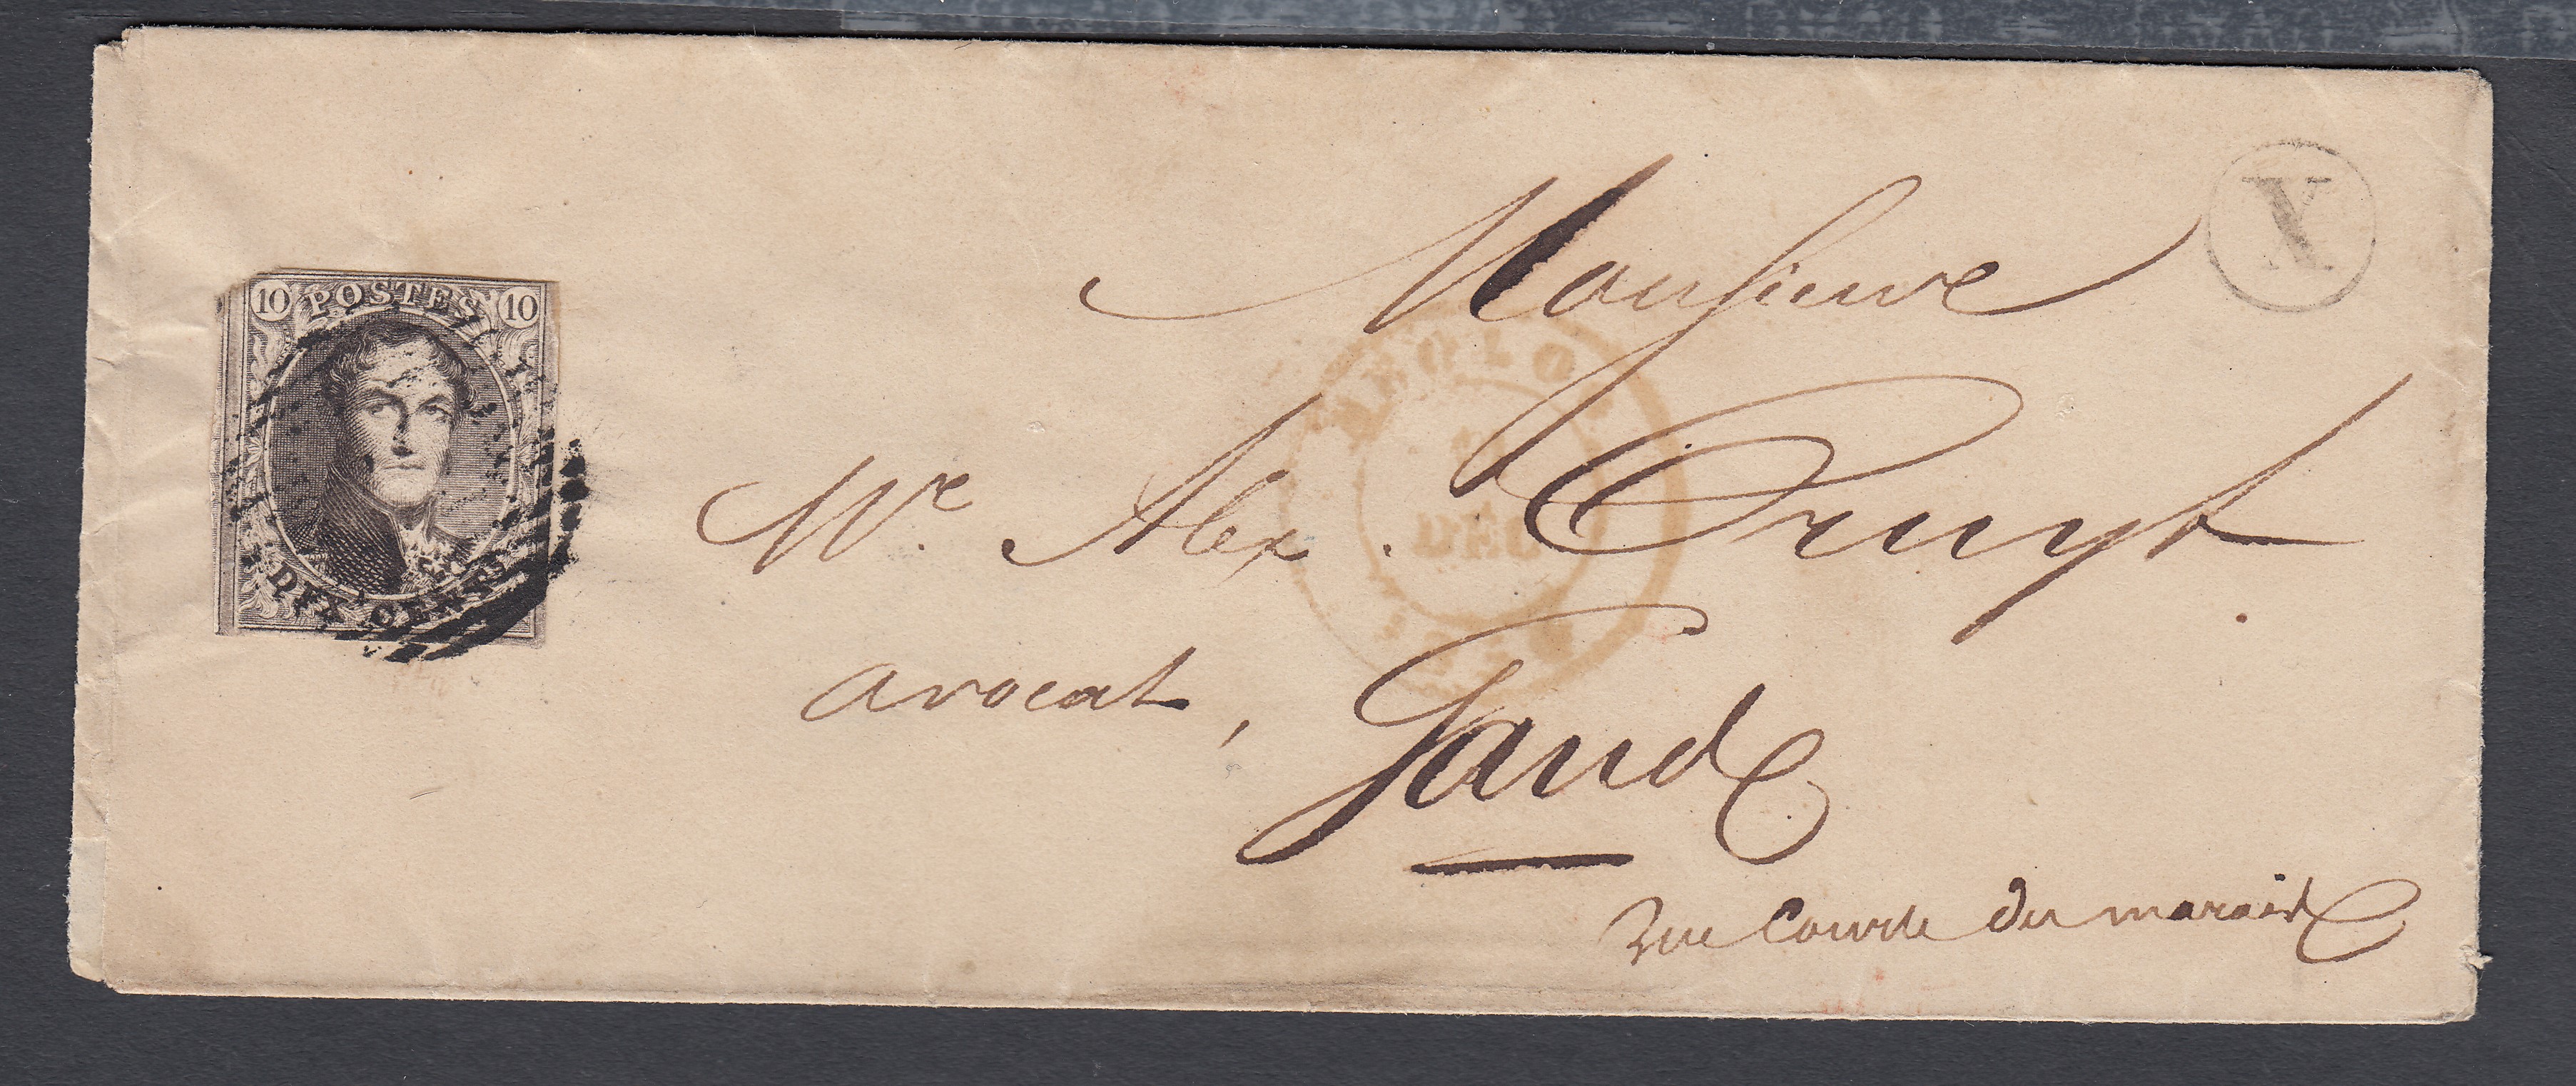 10 POSTES 10
DIX CENTS
X
Monsieur
Mr. Alex.
DEC
avocat, Gand
rue Courte du marais